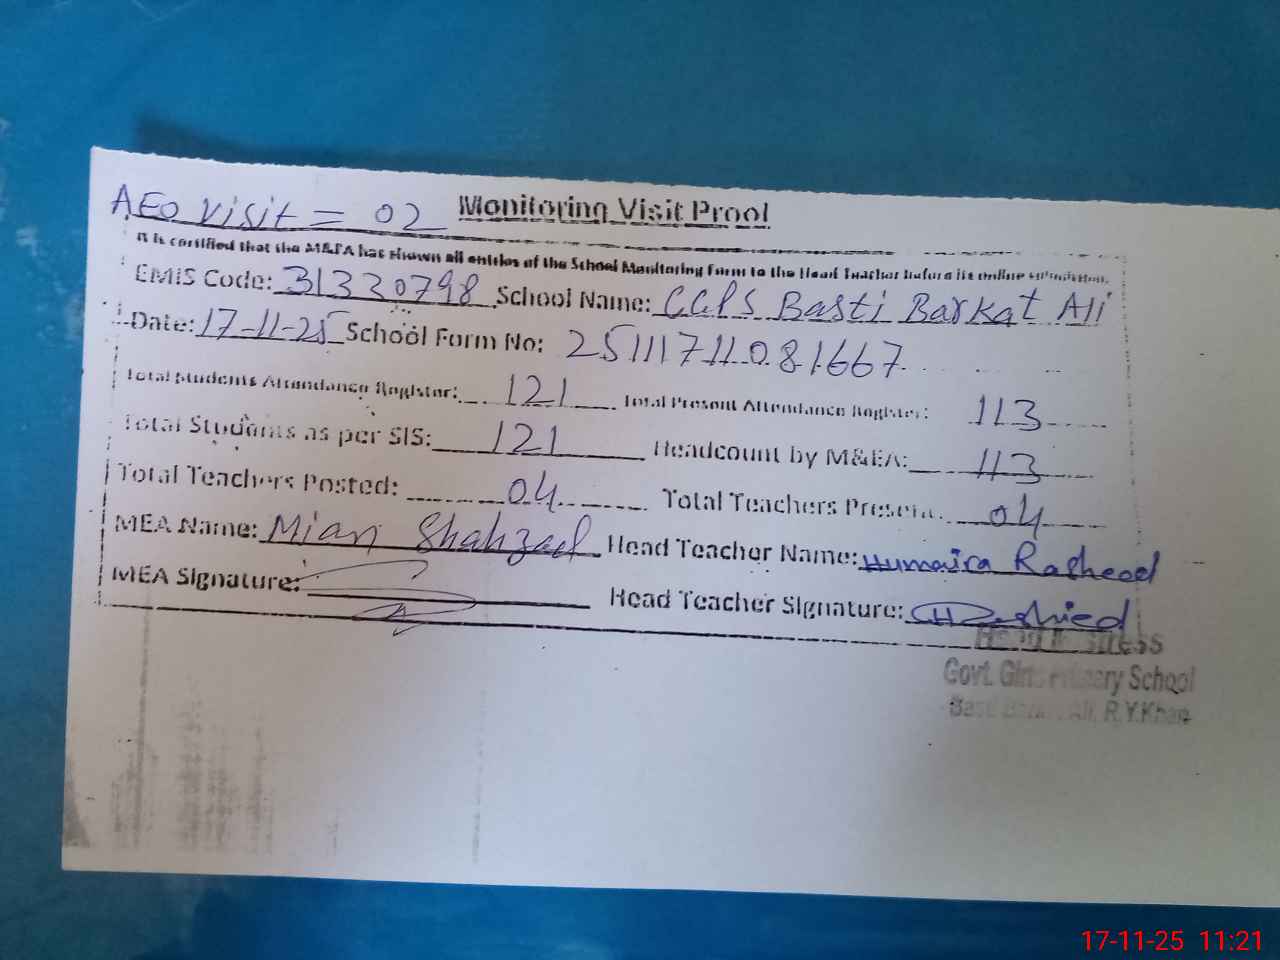 AEO Visit = 02 Monitoring Visit Proof
It is certified that the M&EA has shown all entries of the School Monitoring Form to the Head Teacher before its online submission.
EMIS Code: 31330798 School Name: GGPS Basti Barkat Ali
Date: 17-11-25 School Form No: 25111711081667
Total Students Attendance Register: 121 Total Present Attendance Register: 113
Total Students as per SIS: 121 Headcount by M&EA: 113
Total Teachers Posted: 04 Total Teachers Present: 04
MEA Name: Mian Shahzad Head Teacher Name: Humaira Rasheed
MEA Signature: Head Teacher Signature: HRashied
Head Mistress
Govt. Girls Primary School
Basti Barkat Ali, R.Y.Khan
17-11-25 11:21